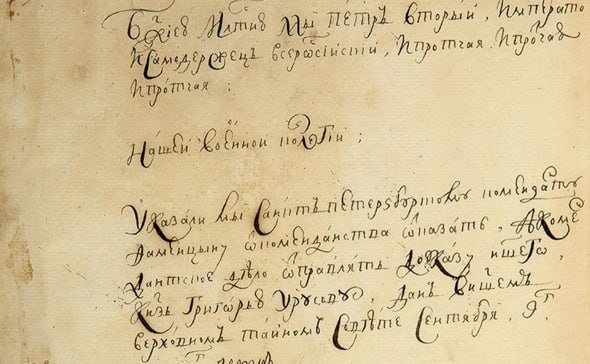 Бжїею млтїю мы пётръ вторый, императо
исамодержецъ всеросїискїй, ипротчая ипротчая
ипротчая :
нашей военной колегїи ;
Указали мы санктъпетерз бургского коменданта
откоменданства отказать , а коме
дантское дело отправлять доуказу нашего
князь григорью урусову , данъ внашемъ
верховномъ тайномъ советѣ сентября , г